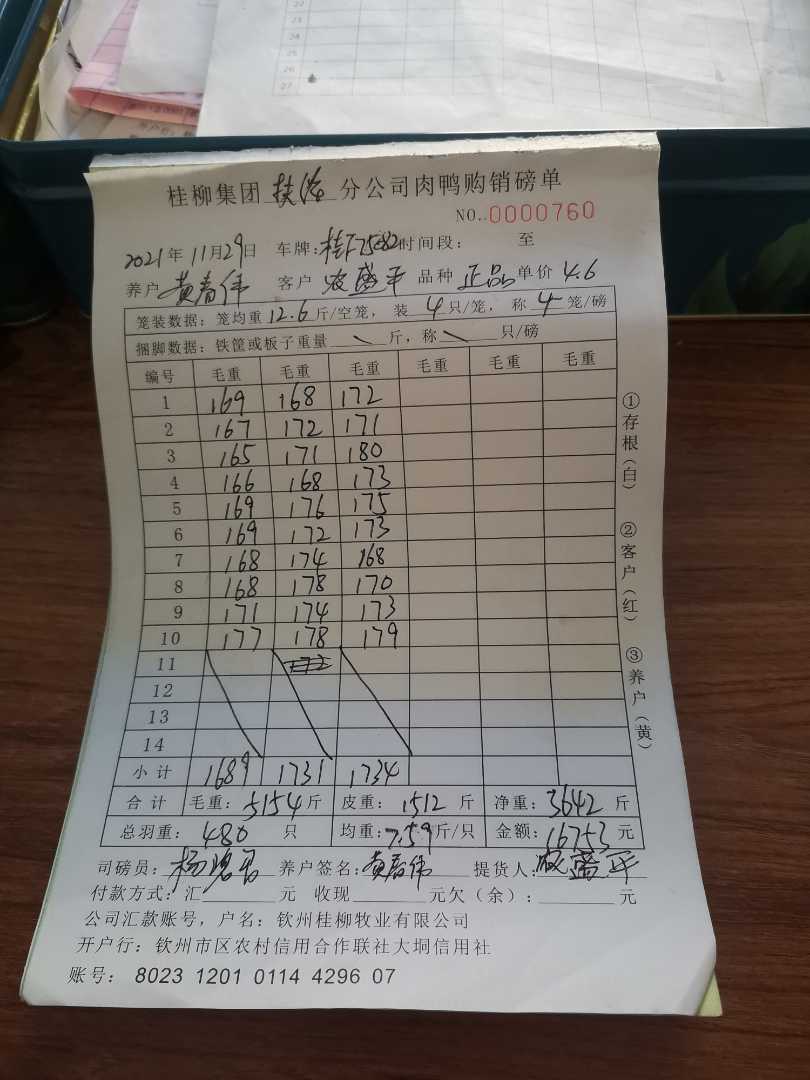 22
23
24
25
26
27
桂柳集团 扶绥 分公司肉鸭购销磅单
NO..0000760
2021年11月29日 车牌:桂F75082时间段: 至
养户 黄春伟 客户 农盛平 品种 正品 单价 4.6
笼装数据:笼均重12.6斤/空笼, 装 4 只/笼, 称 4 笼/磅
捆脚数据:铁筐或板子重量 \ 斤,称 \ 只/磅
编号 毛重 毛重 毛重 毛重 毛重 毛重
1 169 168 172
2 167 172 171
3 165 171 180
4 166 168 173
5 169 176 175
6 169 172 173
7 168 174 168
8 168 178 170
9 171 174 173
10 177 178 179
11
12
13
14
小计 1689 1731 1734
合计 毛重:5154斤 皮重:1512 斤 净重:3642 斤
总羽重:480 只 均重:7.59斤/只 金额:16753元
司磅员: 养户签名:黄春伟 提货人:农盛平
付款方式:汇 元 收现 元欠(余): 元
公司汇款账号,户名:钦州桂柳牧业有限公司
开户行:钦州市区农村信用合作联社大垌信用社
账号: 8023 1201 0114 4296 07
①存根(白) ②客户(红) ③养户(黄)